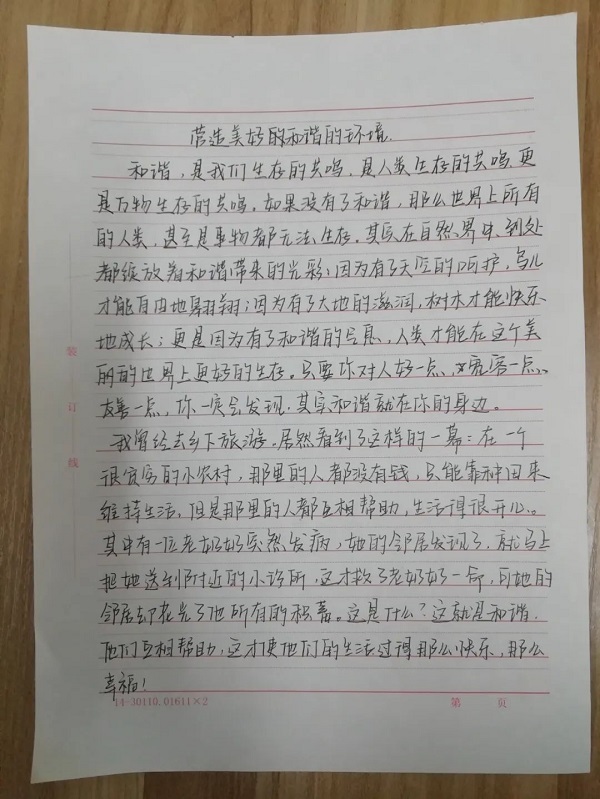 营造美好的和谐的环境.
和谐，是我们生存的共鸣，是人类生存的共鸣，更
是万物生存的共鸣。如果没有了和谐，那么世界上所有
的人类，甚至是事物都无法生存。其实在自然界中，到处
都绽放着和谐带来的光彩：因为有了天空的呵护，鸟儿
才能自由地翱翔；因为有了大地的滋润，树木才能快乐
地成长；更是因为有了和谐的气息，人类才能在这个美
丽的世界上更好的生存。只要你对人好一点，宽容一点、
友善一点，你一定会发现，其实和谐就在你的身边。
我曾经去乡下旅游。居然看到了这样的一幕：在一个
很贫穷的小农村，那里的人都没有钱，只能靠种田来
维持生活，但是那里的人都互相帮助，生活得很开心。
其中有一位老奶奶突然发病，她的邻居发现了，就马上
把她送到附近的小诊所，这才救了老奶奶一命，可她的
邻居却花光了他所有的积蓄。这是什么？这就是和谐.
他们互相帮助，这才使他们的生活过得那么快乐，那么
幸福！
14-30110.01611×2
第 页
装
订
线